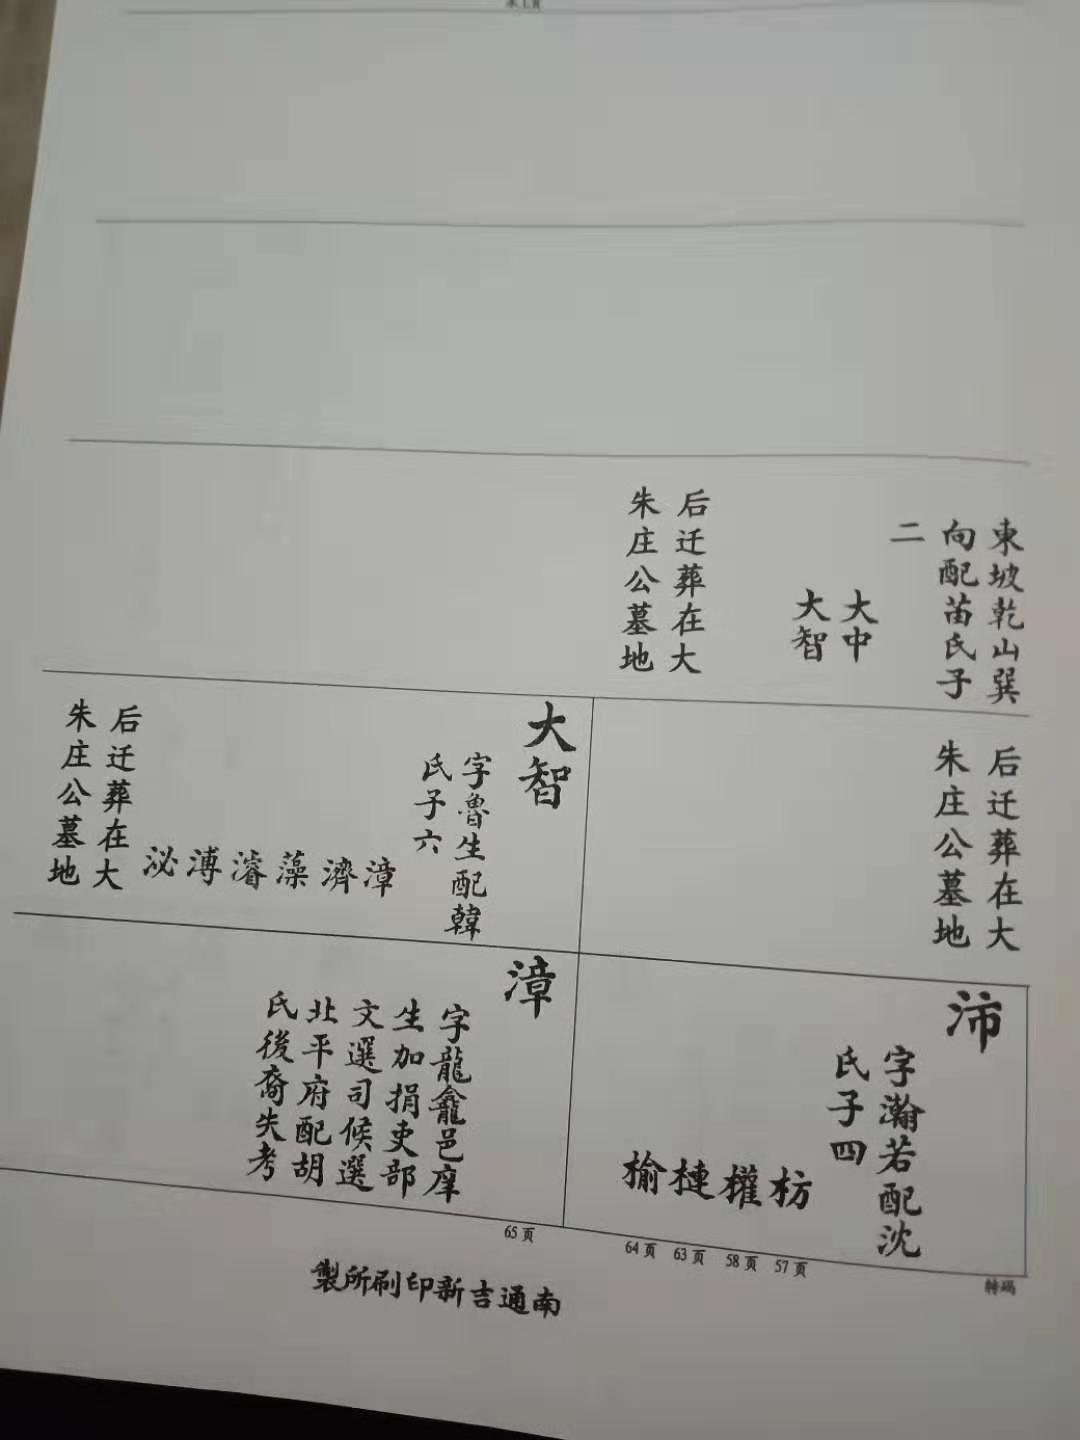 東坡乾山巽
向配苗氏子
二
大中
大智
后迁葬在大
朱庄公墓地
后迁葬在大
朱庄公墓地
大智
字魯生配韓
氏子六
漳
濟
藻
濬
溥
泌
后迁葬在大
朱庄公墓地
沛
字瀚若配沈
氏子四
枋
權
槤
榆
漳
字龍龕邑庠
生加捐吏部
文選司候選
北平府配胡
氏後裔失考
转码
57页
58页
63页
64页
65页
南通吉新印刷所製